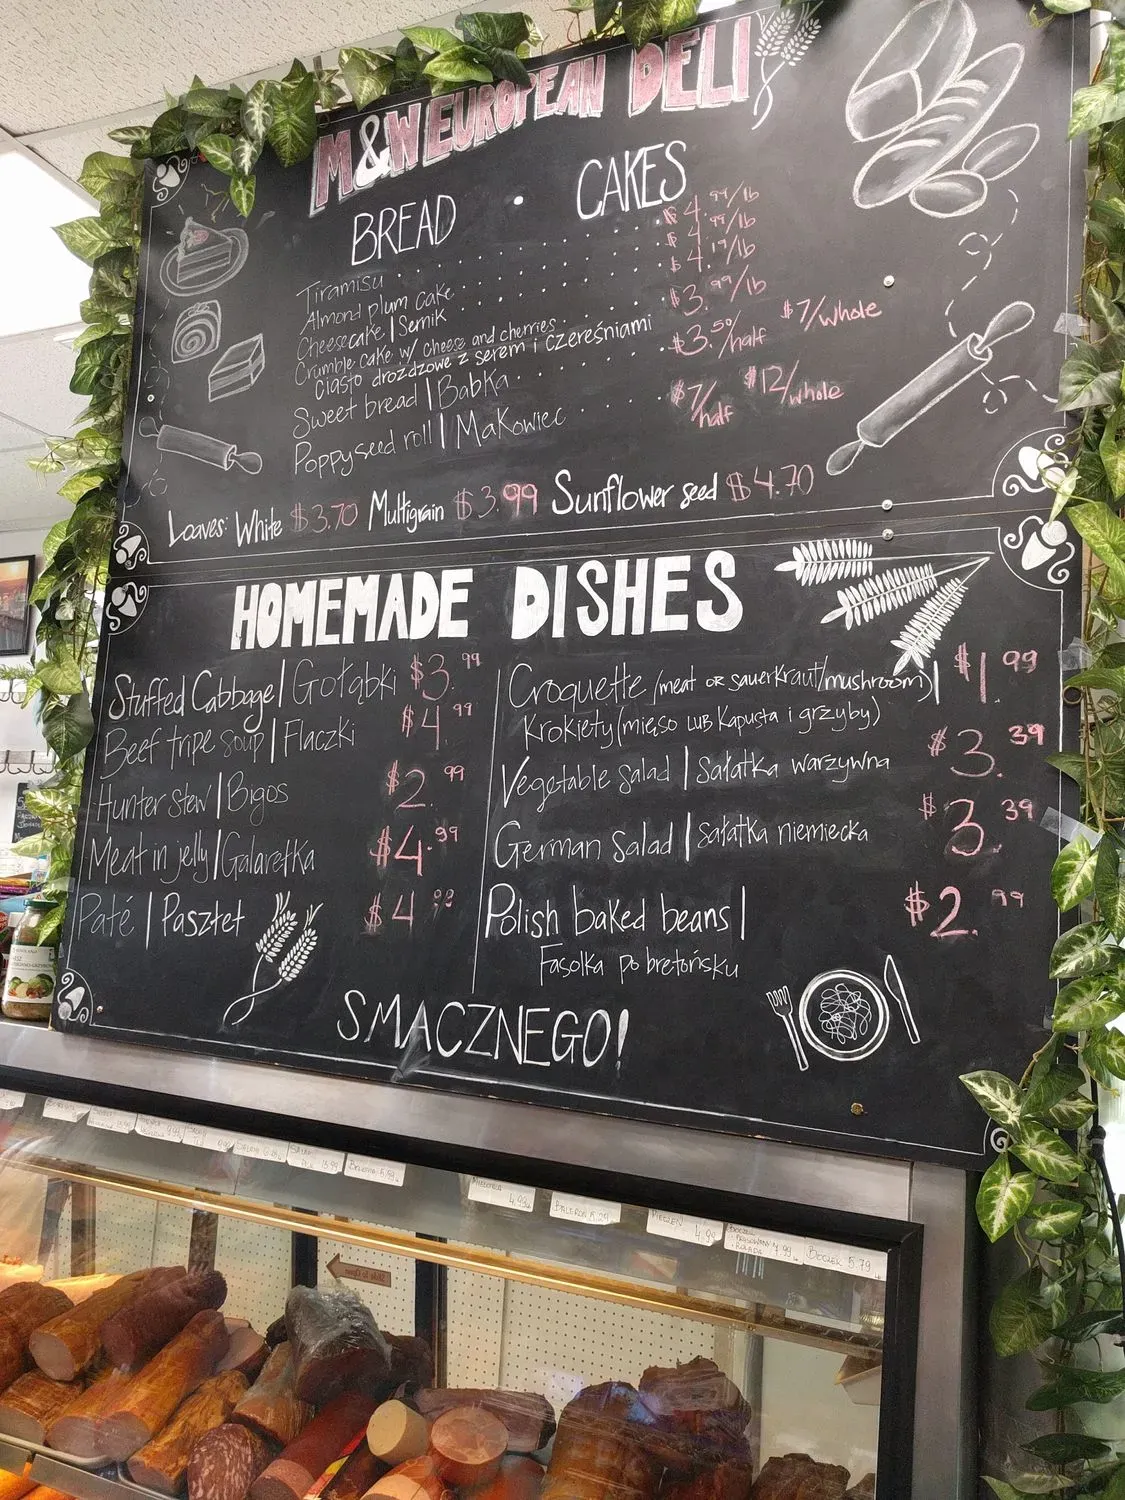 M&W EUROPEAN DELI
BREAD · CAKES
Tiramisu $4.99/lb
Almond plum cake $4.99/lb
Cheesecake | Sernik $4.19/lb
Crumble cake w/ cheese and cherries $3.99/lb
ciasto drożdżowe z serem i czereśniami
Sweet bread | Babka $3.50/half $7/whole
Poppyseed roll | Makowiec $7/half $12/whole
Loaves: White $3.70 Multigrain $3.99 Sunflower seed $4.70
HOMEMADE DISHES
Stuffed Cabbage | Gołąbki $3.99
Beef tripe soup | Flaczki $4.99
Hunter stew | Bigos $2.99
Meat in jelly | Galaretka $4.99
Paté | Pasztet $4.99
Croquette (meat or sauerkraut/mushroom) | $1.99
Krokiety (mięso LUB Kapusta i grzyby)
Vegetable Salad | Sałatka warzywna $3.39
German Salad | Sałatka niemiecka $3.39
Polish baked beans | $2.99
Fasolka po bretońsku
SMACZNEGO!
BALERON 5.29
BOCZEK 5.79